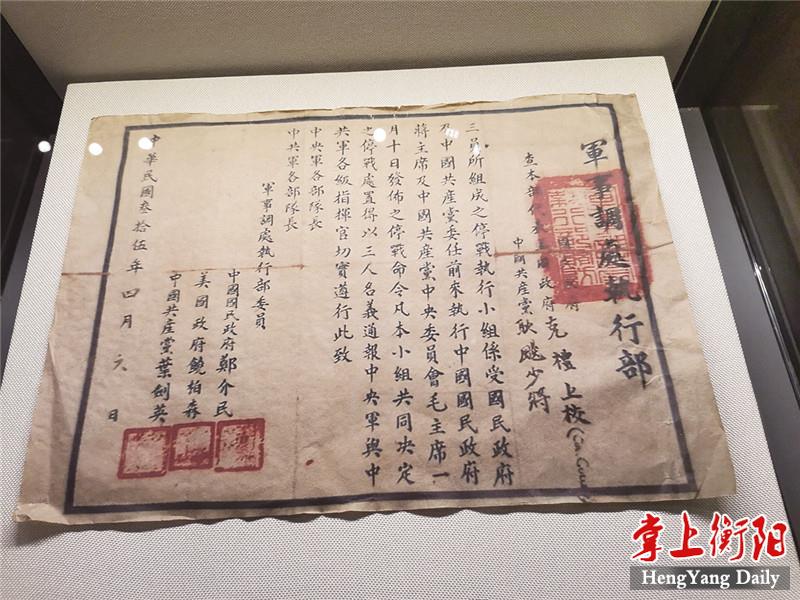 軍事調處執行部
查本部代表
政府克禮上校
中國共產黨耿飈少將
三員所組成之停戰執行小組係受國民政府
及中國共產黨委任前來執行中國國民政府
蔣主席及中國共產黨中央委員會毛主席一
月十日發佈之停戰命令凡本小組共同決定
之停戰處置得以三人名義通報中央軍與中
共軍各級指揮官切實遵行此致
中央軍各部隊長
中共軍各部隊長
軍事調處執行部委員
中國國民政府鄭介民
美國政府饒柏森
中國共產黨葉劍英
中華民國叁拾伍年四月六日
掌上衡阳
HengYang Daily